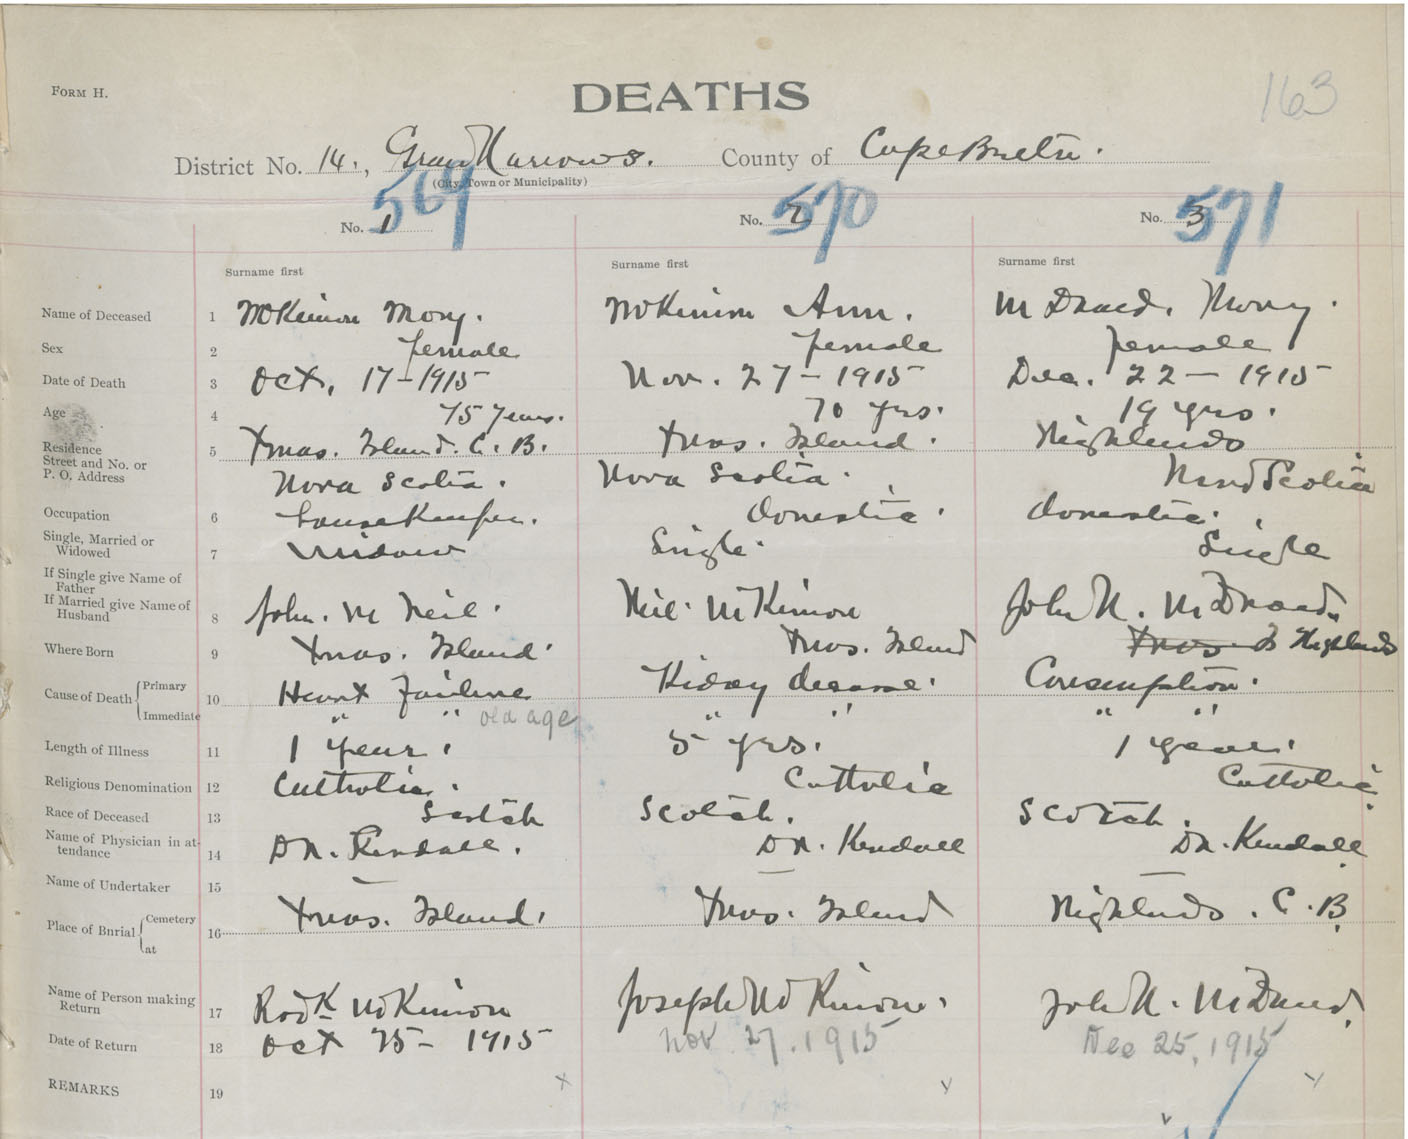 FORM H.
163
DEATHS
District No. 14., Grand Narrows. County of Cape Breton.
(City, Town or Municipality)
569 570 571
No. 1 No. 2 No. 3
Surname first Surname first Surname first
Name of Deceased 1 McKinnon Mary. McKinnon Ann. Mary.
Sex 2 female female female
Date of Death 3 Oct. 17-1915 Nov. 27-1915 Dec. 22-1915
Age 4 75 years. 70 yrs. 19 yrs.
Residence
Street and No. or 5 Xmas. Island. C. B. Xmas. Island. Highlands
P. O. Address Nova Scotia. Nova Scotia. Nova Scotia
Occupation 6 housekeeper. domestic. domestic.
Single, Married or
Widowed 7 Widow Single. Single
If Single give Name of
Father
If Married give Name of
Husband 8 John. McNeil. Neil. McKinnon John N.
Where Born 9 Xmas. Island. Xmas. Island Xmas Highlands
Cause of Death Primary 10 Heart Failure Kidney disease. Consumption.
Immediate " " old age " " " "
Length of Illness 11 1 year. 5 yrs. 1 year.
Religious Denomination 12 Catholic. Catholic Catholic.
Race of Deceased 13 Scotch Scotch. Scotch.
Name of Physician in at-
tendance 14 DR. Kendall. DR. Kendall DR. Kendall
Name of Undertaker 15 — — —
Place of Burial Cemetery 16 Xmas. Island. Xmas. Island Highlands. C. B.
at
Name of Person making
Return 17 Rodk McKinnon Joseph McKinnon. John N.
Date of Return 18 Oct 25-1915 Nov 27. 1915 Dec 25, 1915
REMARKS 19